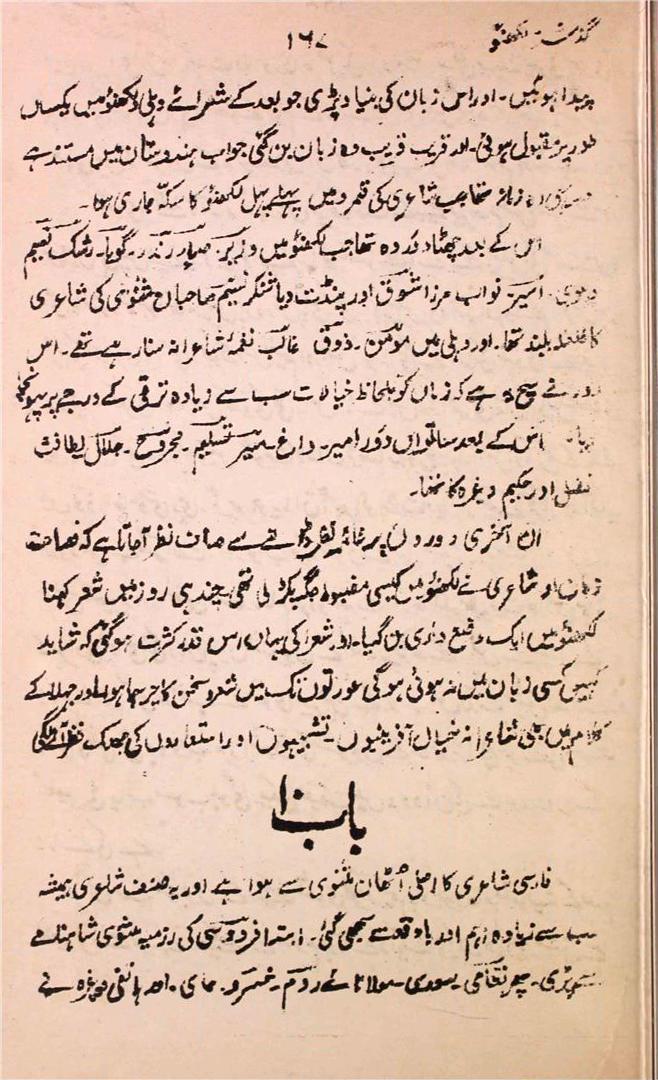 گذشتہ لکھنؤ ۱۶۷
پیدا ہوئیں۔ اور اس زبان کی بنیاد پڑی جو بعد کے شعرائے دہلی و لکھنؤ میں یکساں
طور پر مقبول ہوئی۔ اور قریب قریب وہ زبان بن گئی جو اب ہندوستان میں مستند ہے
وہ زمانہ تھا جب شاعری کی قلمرو میں پہلے پہل لکھنؤ کا سکہ جاری ہوا۔
اس کے بعد چھٹا دَور وہ تھا جب لکھنؤ میں وزیر۔ صبا۔ رند۔ گویا۔ رشک نسیم
دہلوی۔ اسیر۔ نواب مرزا شوق اور پنڈت دیا شنکر نسیم صاحبان مثنوی کی شاعری
کا غلغلہ بلند تھا۔ اور دہلی میں مومن۔ ذوق غالب نغمۂ شاعرانہ سنا رہے تھے۔ اس
دور نے سچ یہ ہے کہ زباں کو بلحاظ خیالات سب سے زیادہ ترقی کے درجے پر پہونچا
دیا۔ اس کے بعد ساتواں دَور امیر۔ داغ۔ منیر تسلیم۔ مجروح۔ جلال لطافت
افضل اور حکیم وغیرہ کا تھا۔
ان آخری دوروں پر غائر نظر ڈالنے سے صاف نظر آجاتا ہے کہ فصاحت
زبان و شاعری نے لکھنؤ میں کیسی مضبوط جگہ پکڑ لی تھی۔ چند ہی روز میں شعر کہنا
لکھنؤ میں ایک وضع داری بن گیا۔ اور شعرا کی یہاں اس قدر کثرت ہوگئی کہ شاید
کہیں کسی زبان میں نہ ہوئی ہوگی عورتوں تک میں شعر و سخن کا چرچا ہوا۔ اور جہلا کے
کلام میں بھی شاعرانہ خیال آفرینیوں۔ تشبیہوں اور استعاروں کی جھلک نظر آنے لگی
باب ۱۰
فارسی شاعری کا اصلی اُٹھان مثنوی سے ہوا ہے اور یہ صنف شاعری ہمیشہ
سب سے زیادہ اہم اور باوقعت سمجھی گئی۔ ابتدا فردوسی کی رزمیہ مثنوی شاہنامے
سے پڑی۔ پھر نظامی۔ سعدی۔ مولانائے روم۔ خسرو۔ جامی۔ اور ہاتفی وغیرہ نے